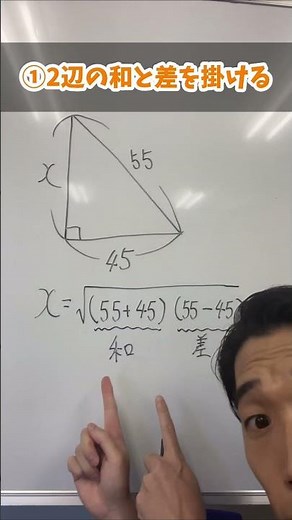 ①2辺の和と差を掛ける
x
55
45
x=√(55+45)(55-45)
和 差